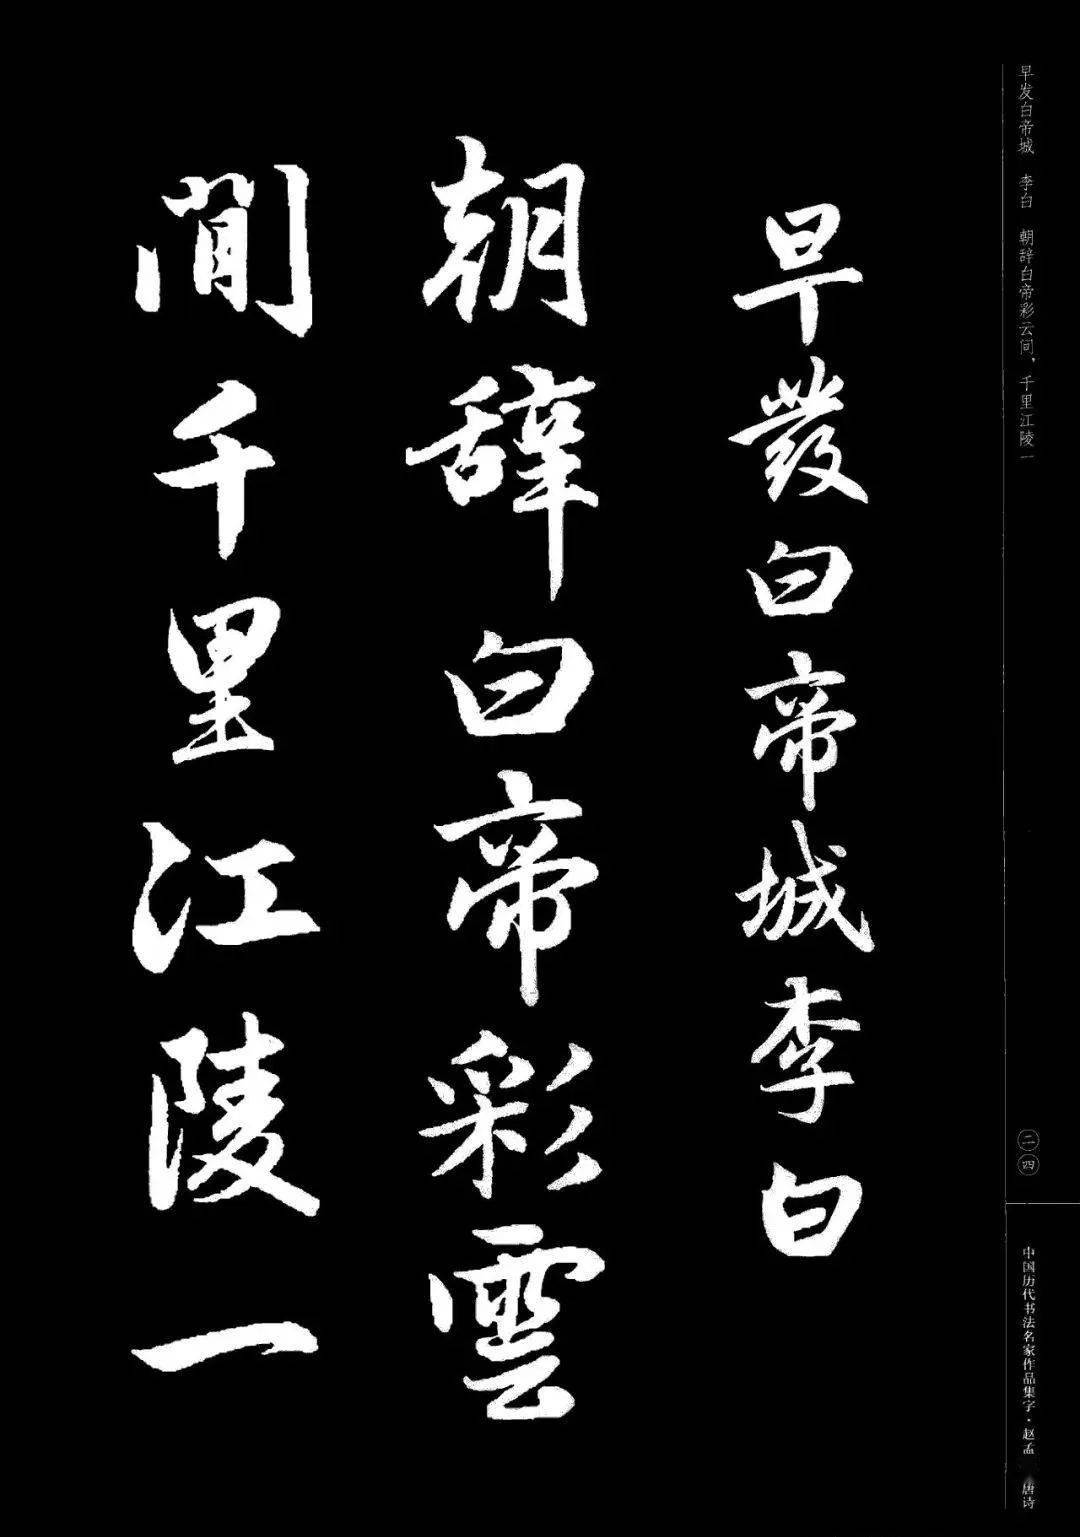 早发白帝城　李白　朝辞白帝彩云间，千里江陵一
二四
中国历代书法名家作品集字·赵孟　唐诗
早發白帝城李白
朝辭白帝彩雲
間千里江陵一